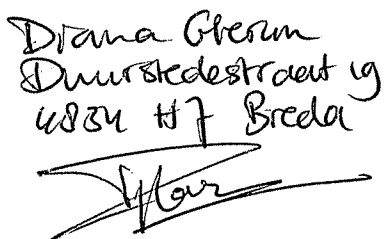 Diana Gherin
Duurstedestraat 19
4834 HJ Breda